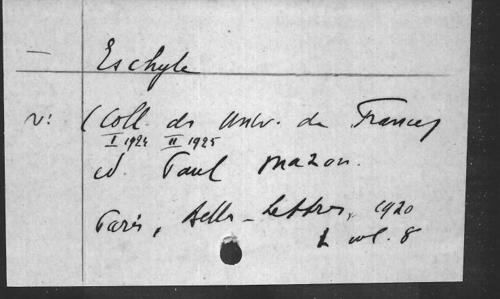 Eschyle
v: (Coll. des Univ. de France)
I 1924 II 1925
éd. Paul Mazon.
Paris, Belles-Lettres, 1920
2 vol. 8